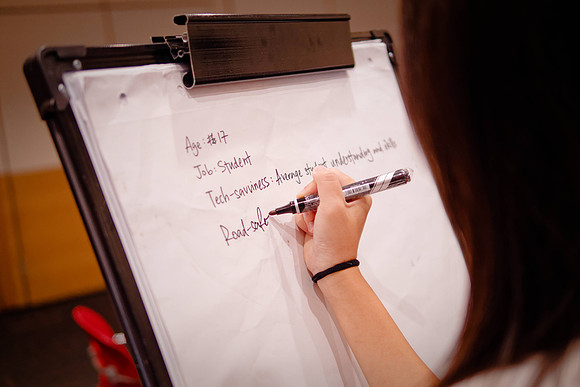 Age: 17
Job: Student
Tech-saviness: Average student understanding and skills
Road-safe